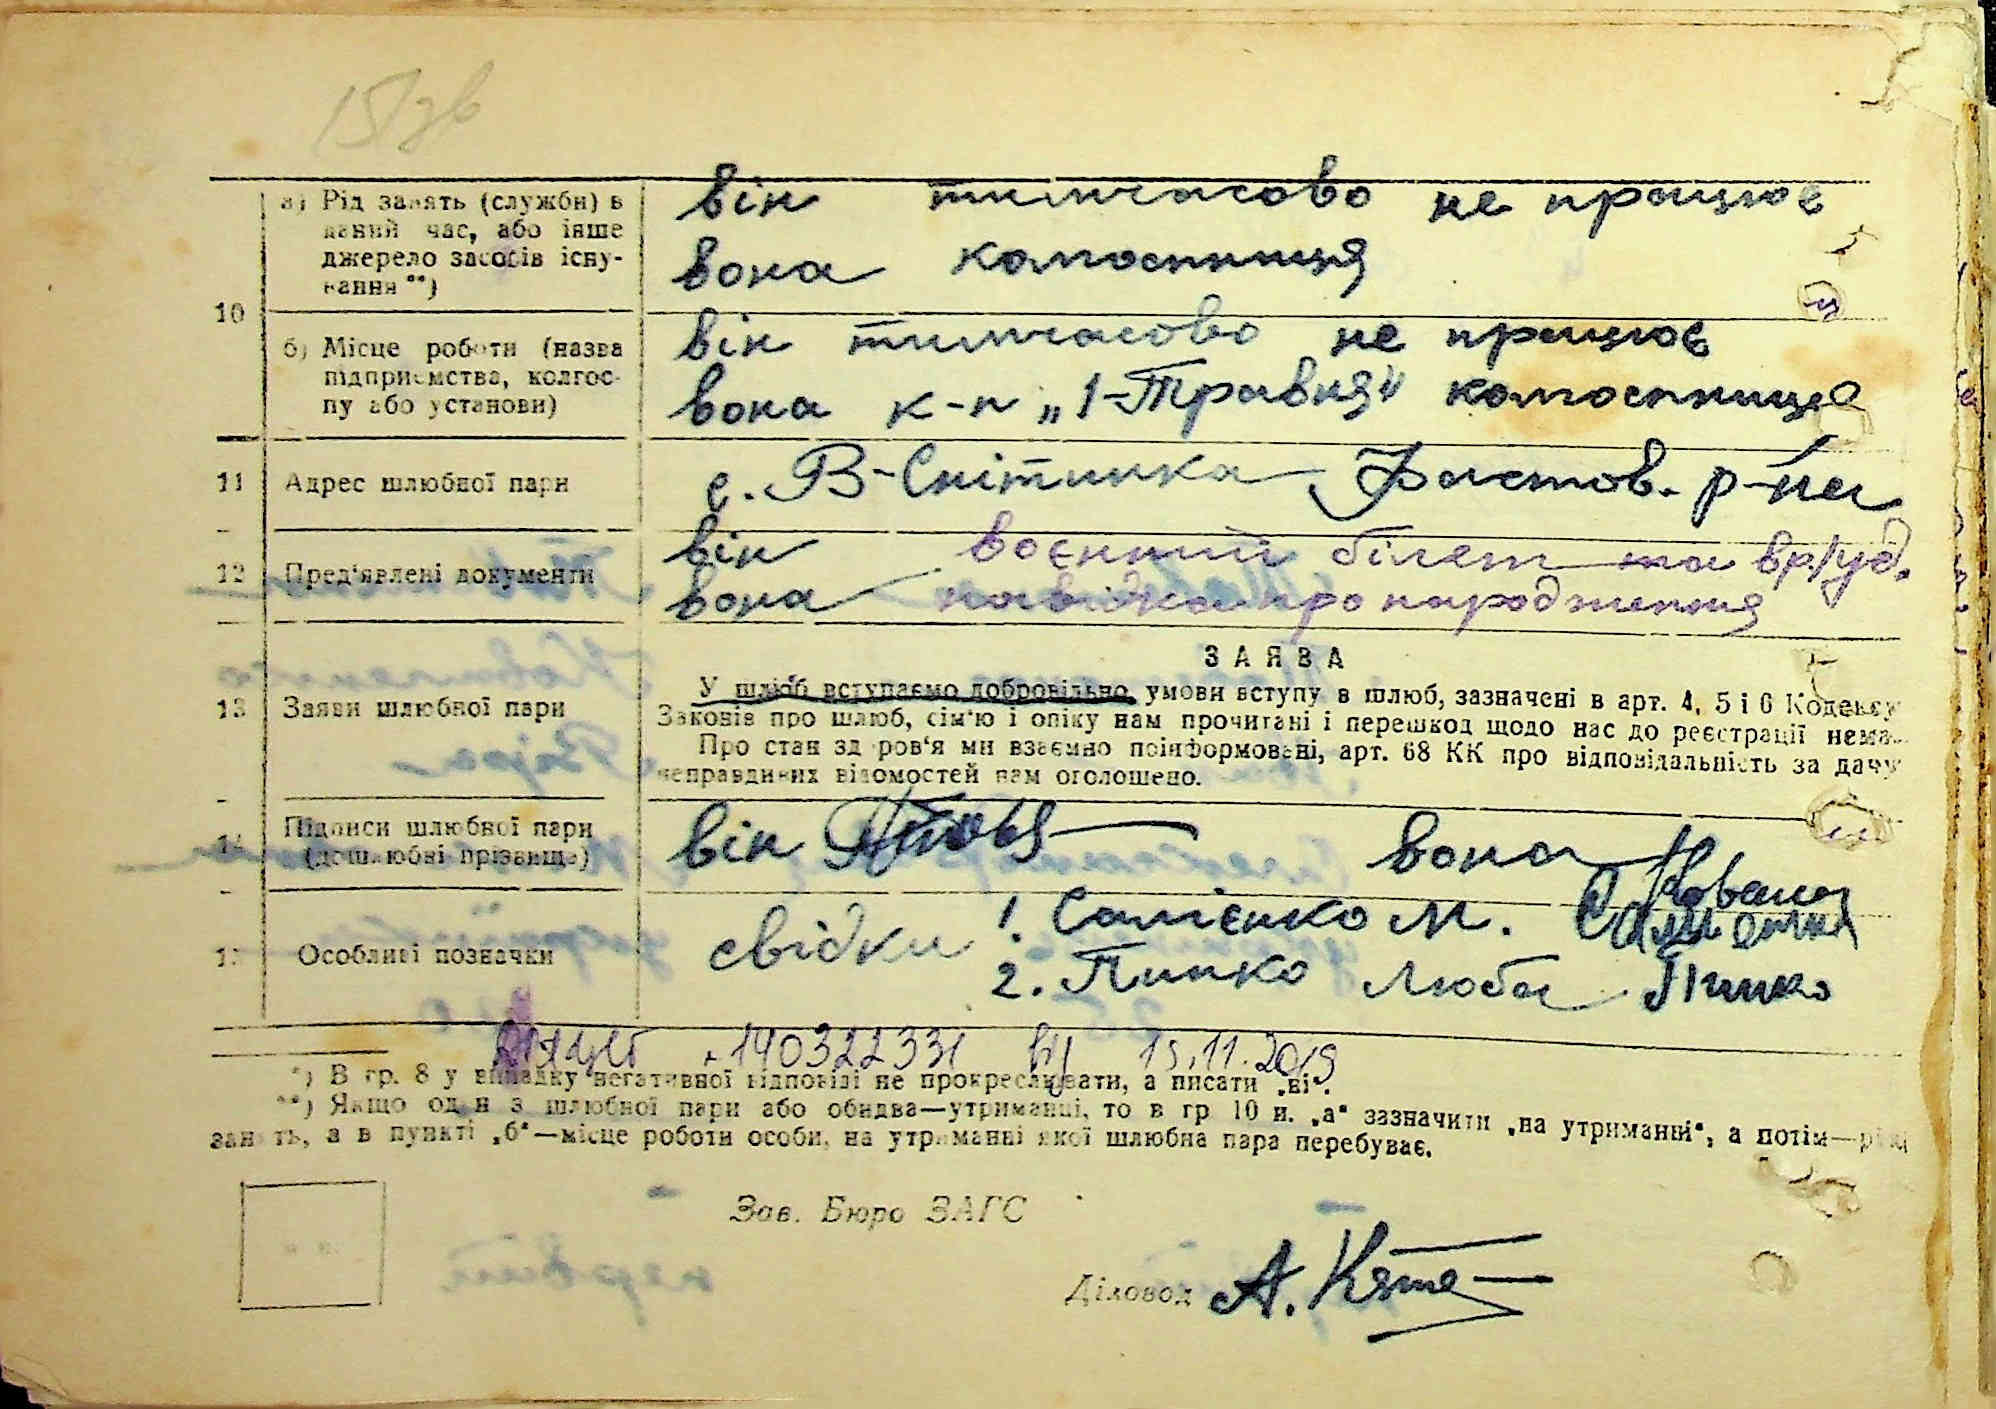 15/зв
10
а) Рід занять (служби) в
даний час, або інше
джерело засобів існу-
вання **)
він тимчасово не працює
вона колгоспниця
б) Місце роботи (назва
підприємства, колгос-
пу або установи)
він тимчасово не працює
вона к-п „1-Травня" колгоспниця
11 Адрес шлюбної пари
с. В-Снітинка Фастов. р-на
12 Пред'явлені документи
він воєнний білет та вр/уд.
вона повідка про народження
ЗАЯВА
13 Заяви шлюбної пари
У шлюб вступаємо добровільно, умови вступу в шлюб, зазначені в арт. 4, 5 і 6 Кодексу
Законів про шлюб, сім'ю і опіку нам прочитані і перешкод щодо нас до реєстрації нема.
Про стан здоров'я ми взаємно поінформовані, арт. 68 КК про відповідальність за дачу
неправдивих відомостей нам оголошено.
14 Підписи шлюбної пари
(дошлюбні прізвища)
він вона
15 Особливі позначки
свідки 1. Самієнко М.
2. Пипко Люба Пипко
140322331 від 15.11.2019
*) В гр. 8 у випадку негативної відповіді не прокреслювати, а писати „ні".
**) Якщо один з шлюбної пари або обидва—утриманці, то в гр 10 п. „а" зазначити „на утриманні", а потім—рід
занять, а в пункті „б"—місце роботи особи, на утриманні якої шлюбна пара перебуває.
Зав. Бюро ЗАГС
Діловод А.